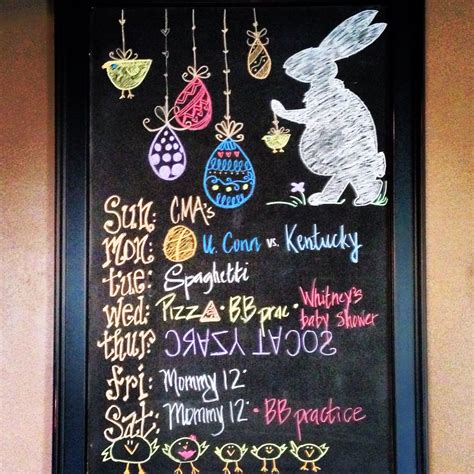 Sun: CMA's
Mon: U. Conn vs. Kentucky
tue: Spaghetti
Wed: Pizza • BB prac • Whitney's baby shower
thur: CRAZY TACOS
fri: Mommy 12
Sat: Mommy 12 • BB practice